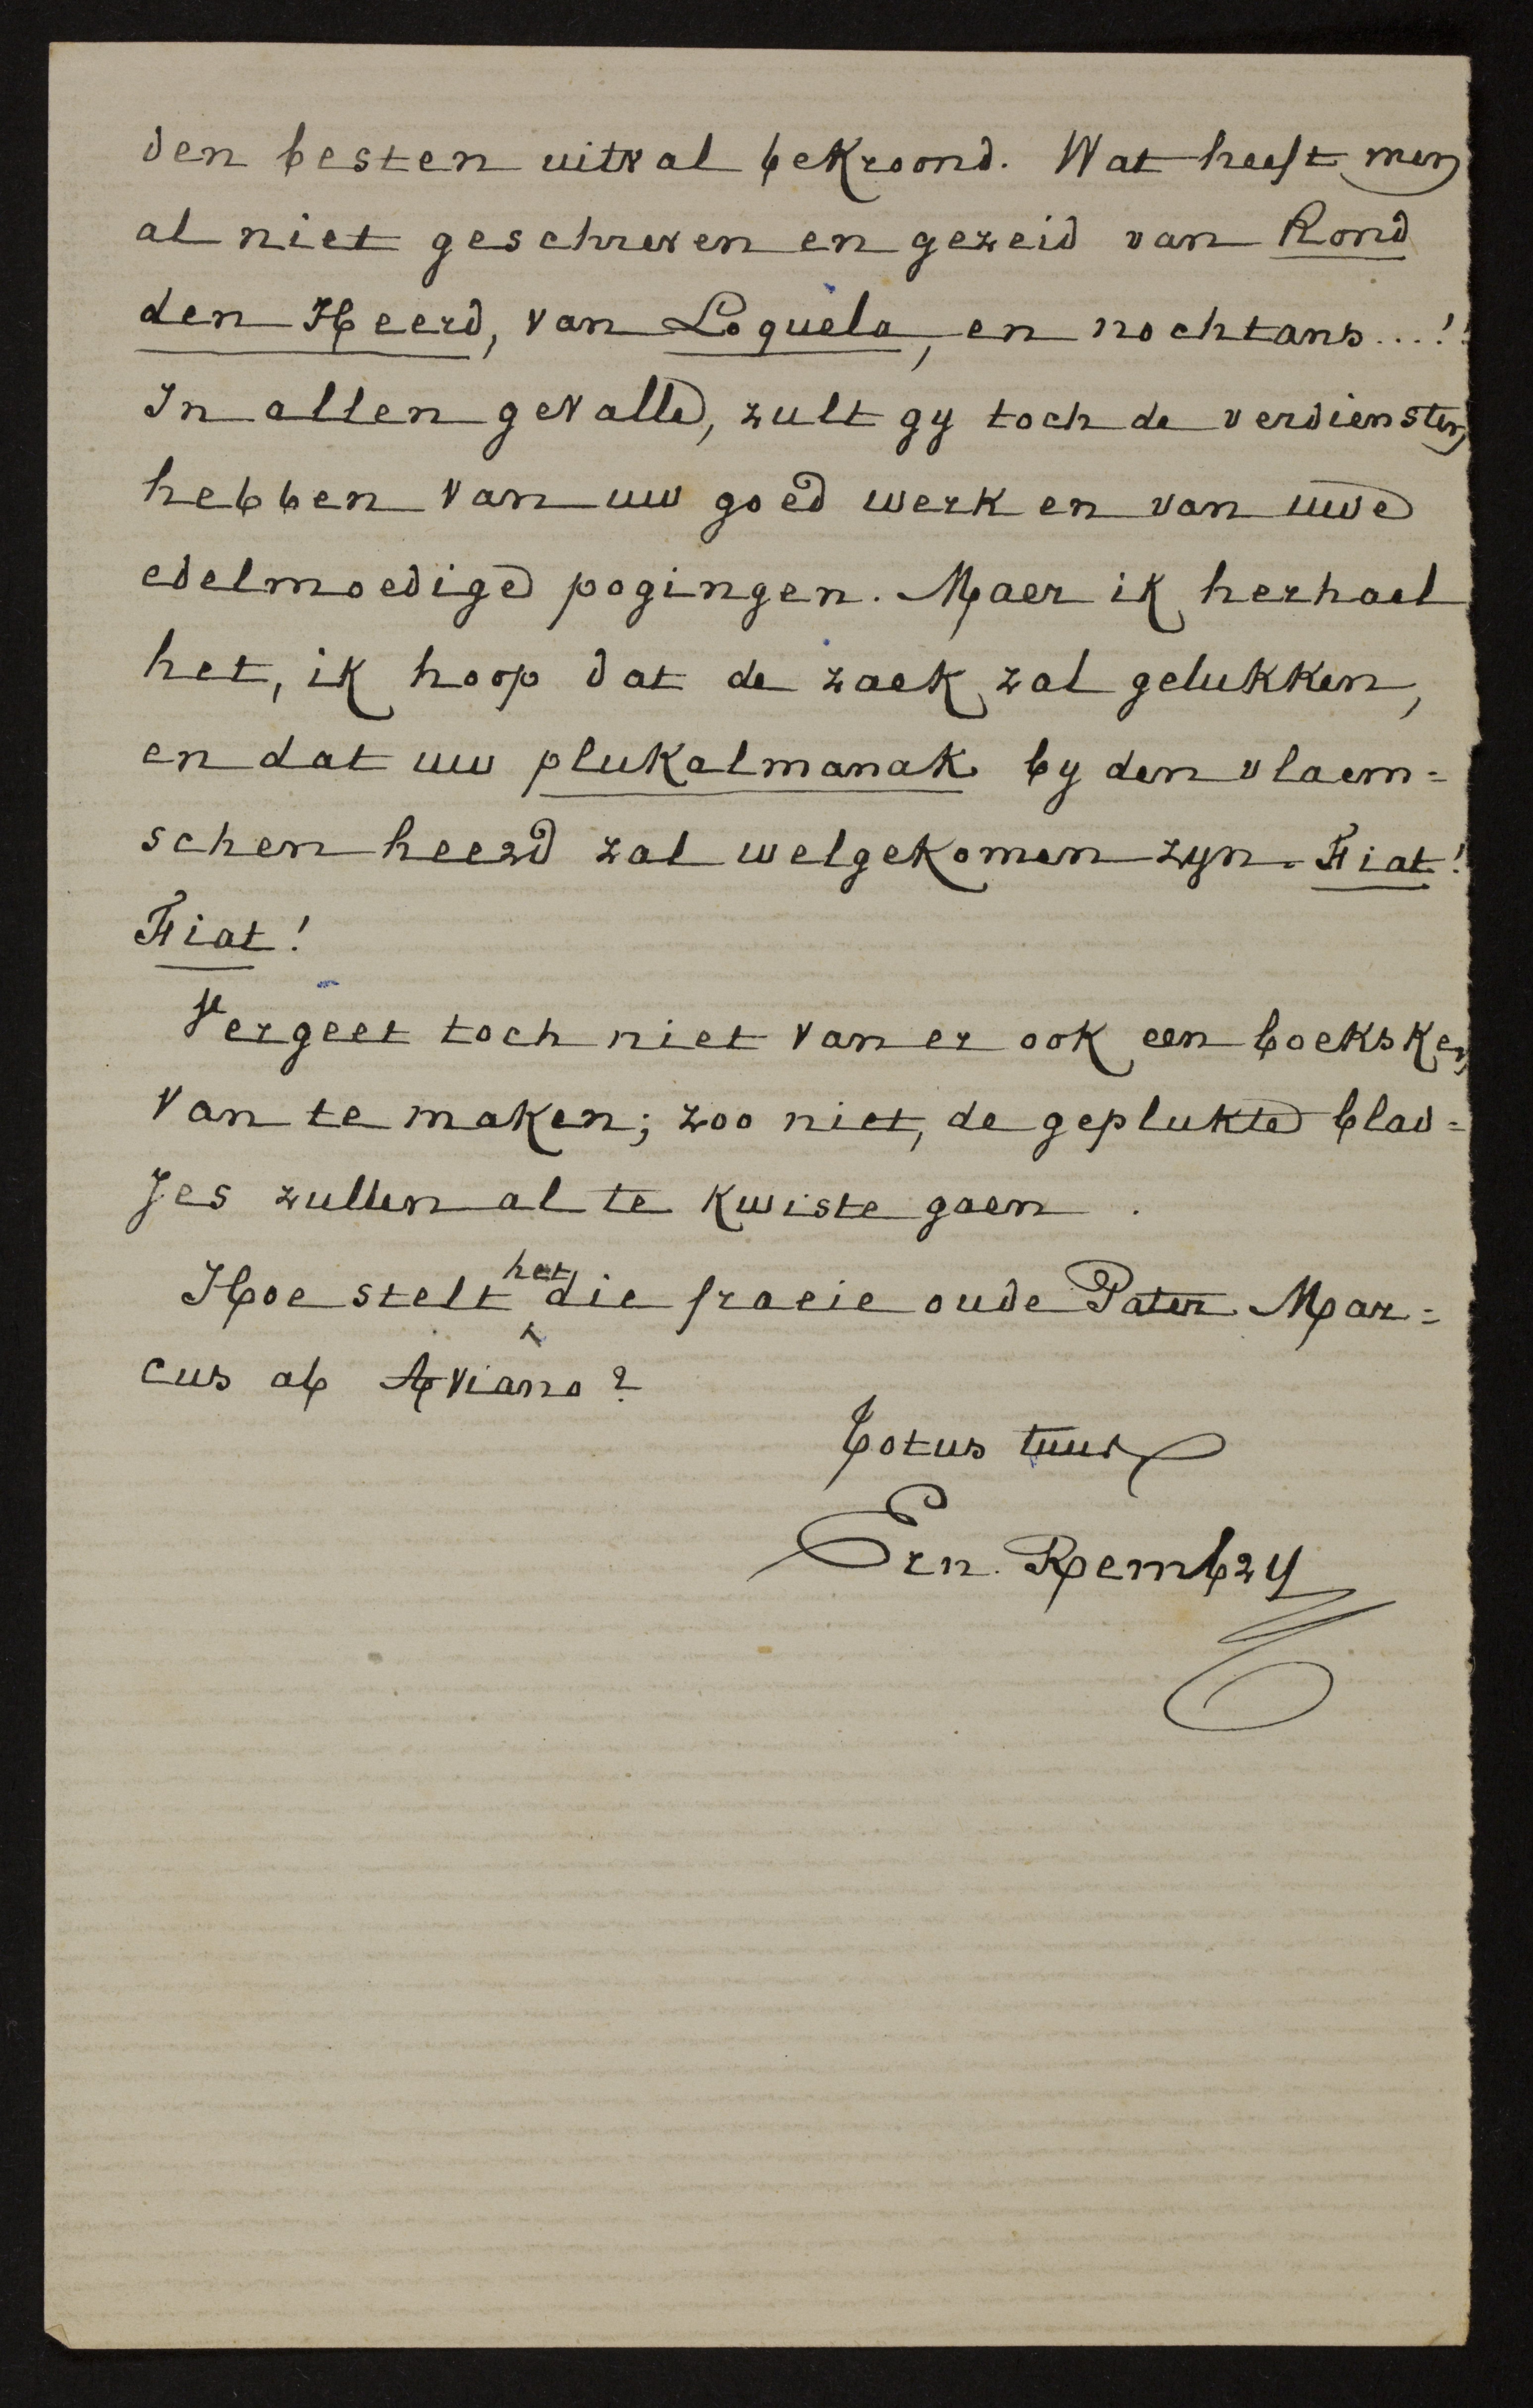 den besten uitval bekroond. Wat heeft men
al niet geschreven en gezeid van Rond
den Heerd, van Loquela, en nochtans...!!
In allen gevalle, zult gy toch de verdiensten
hebben van uw goed werk en van uwe
edelmoedige pogingen. Maer ik herhael
het, ik hoop dat de zaek zal gelukken,
en dat uw plukalmanak by den vlaem=
schen heerd zal welgekomen zyn. Fiat!
Fiat!
Vergeet toch niet van er ook een boeksken
van te maken; zoo niet, de geplukte blad=
jes zullen al te kwiste gaen.
Hoe stelt het die fraeie oude Pater Mar=
cus ab Aviano?
Totus tuus
Ern. Rembry